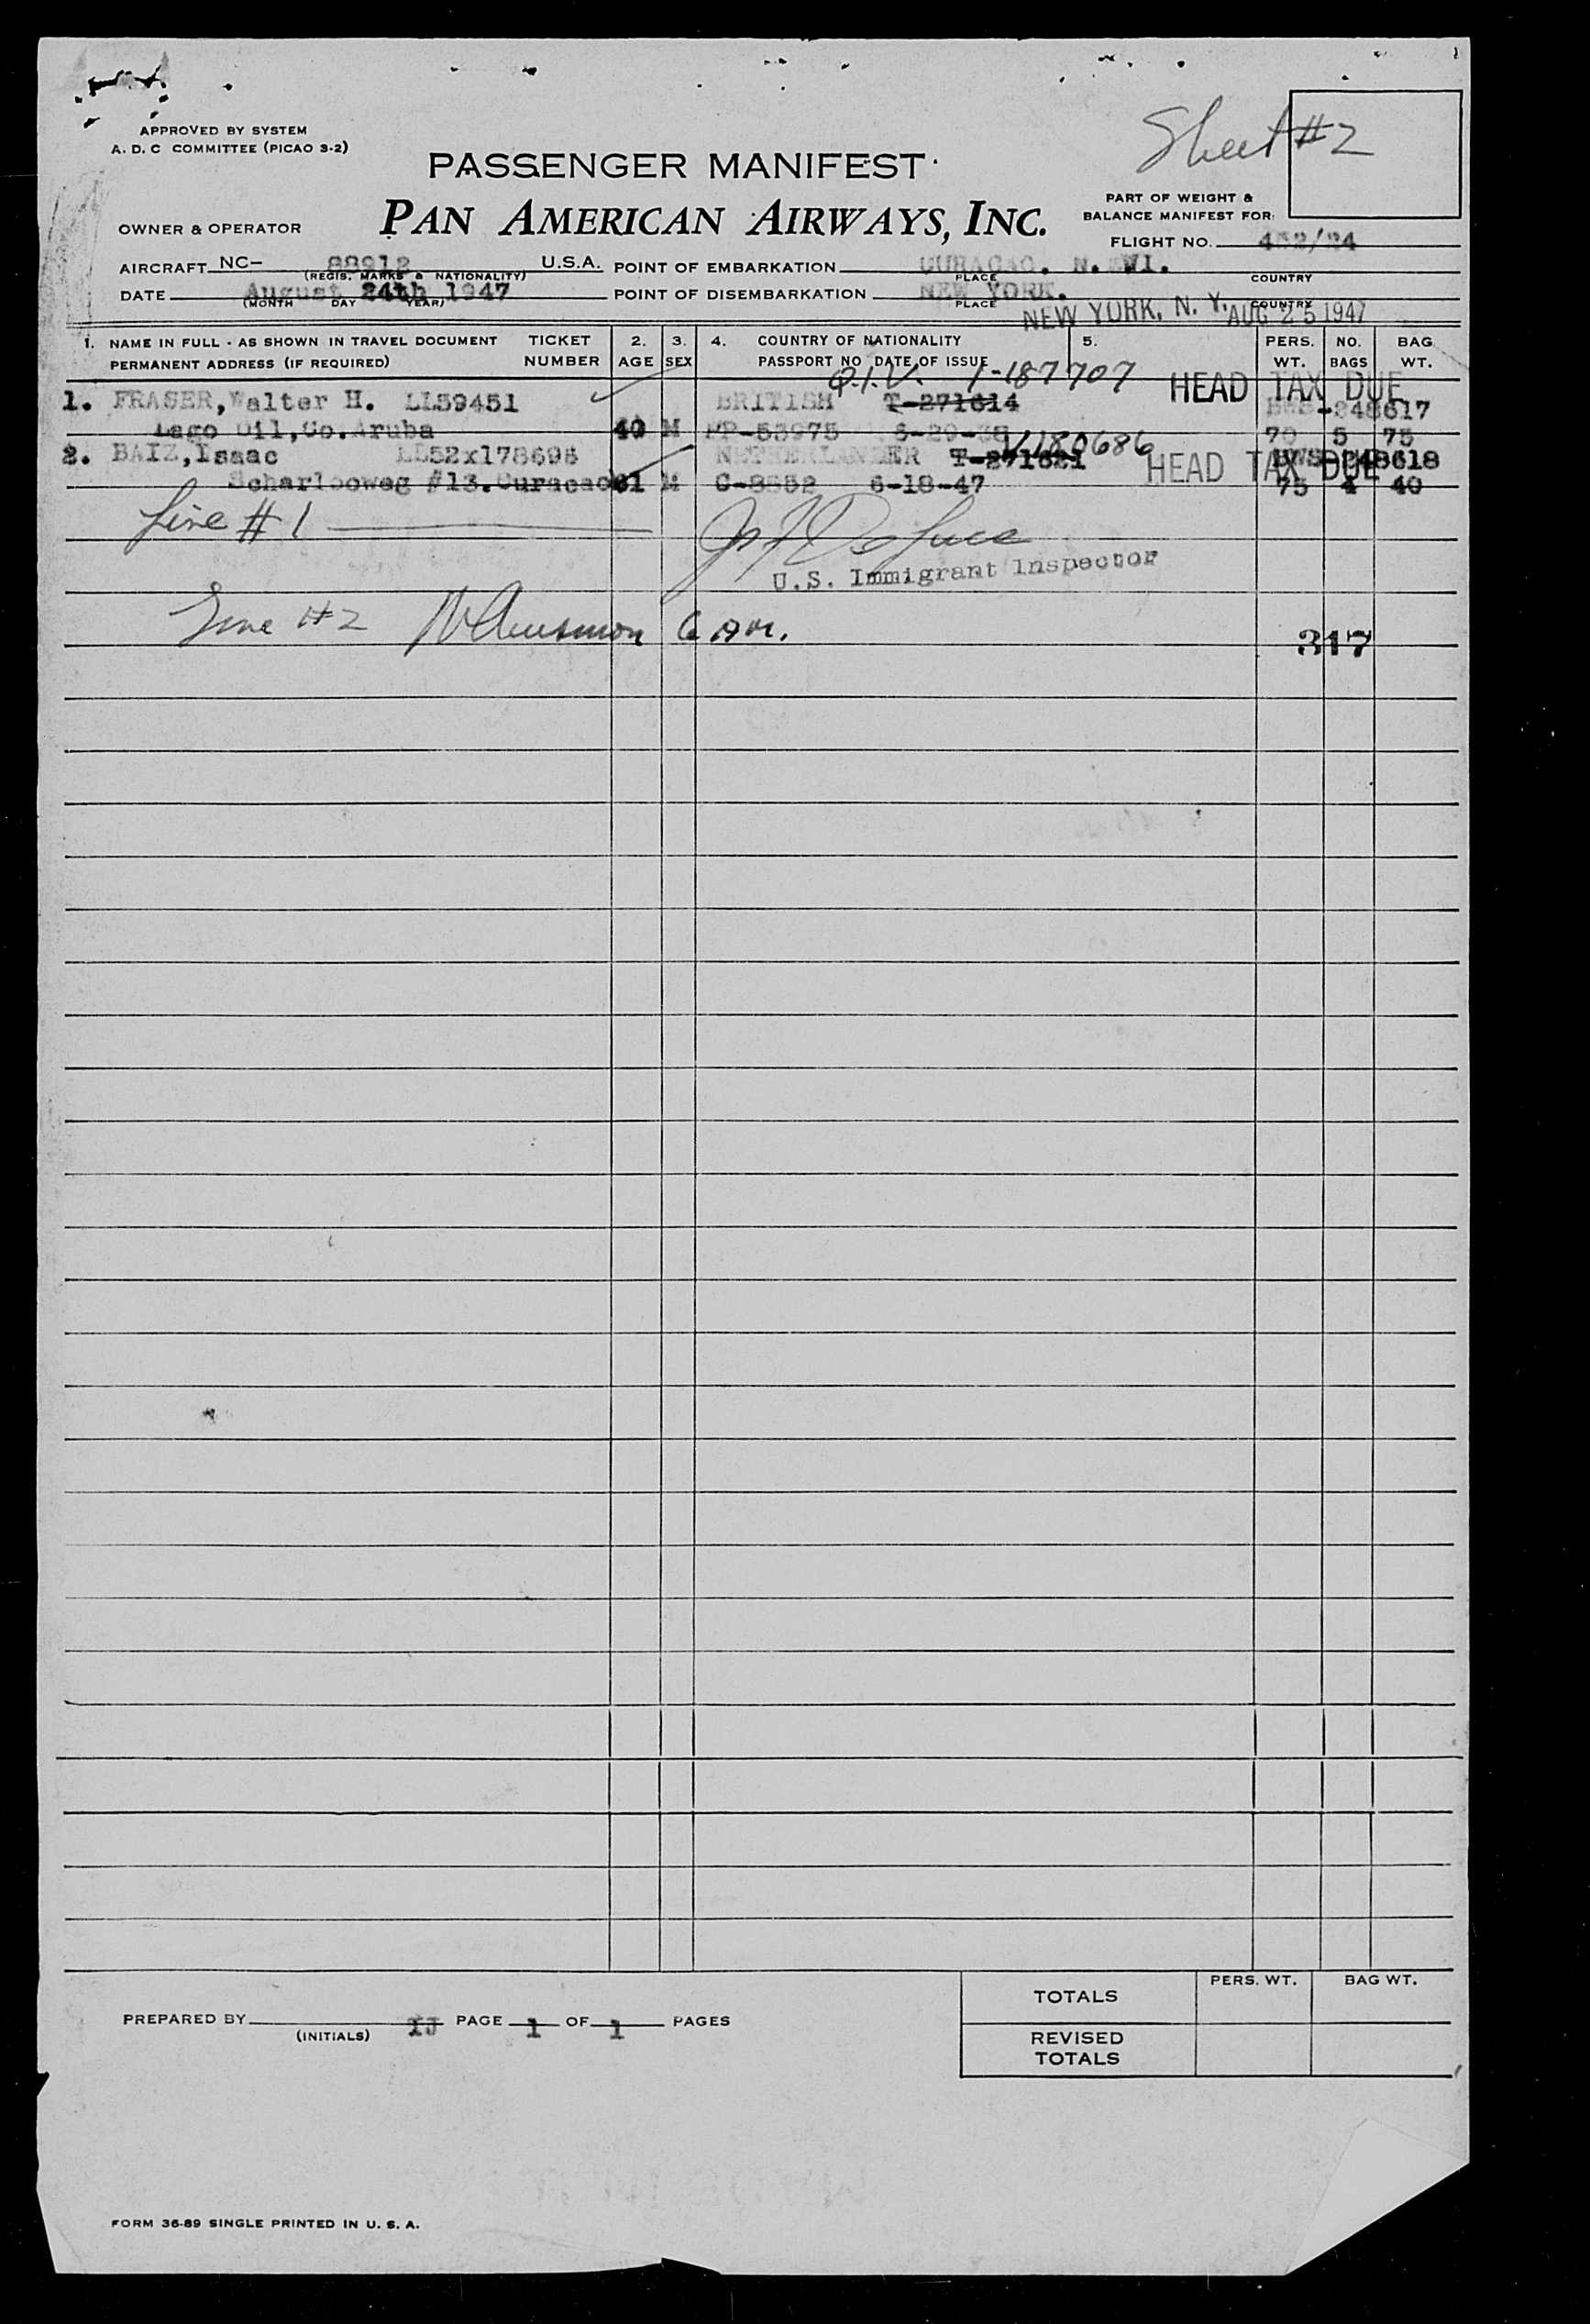 Sheet #2
APPROVED BY SYSTEM
A. D. C COMMITTEE (PICAO 3-2)
PASSENGER MANIFEST
PAN AMERICAN AIRWAYS, INC.
PART OF WEIGHT &
BALANCE MANIFEST FOR:
OWNER & OPERATOR
FLIGHT NO. 452/24
AIRCRAFT NC- 88912 U.S.A. POINT OF EMBARKATION CURACAO. N. WI.
(REGIS. MARKS & NATIONALITY) PLACE COUNTRY
DATE August 24th 1947 POINT OF DISEMBARKATION NEW YORK.
(MONTH DAY YEAR) PLACE COUNTRY
NEW YORK, N. Y. AUG 25 1947
1. NAME IN FULL - AS SHOWN IN TRAVEL DOCUMENT TICKET 2. 3. 4. COUNTRY OF NATIONALITY 5. PERS. NO. BAG
PERMANENT ADDRESS (IF REQUIRED) NUMBER AGE SEX PASSPORT NO DATE OF ISSUE WT. BAGS WT.
Q.I.V. 1-187707 HEAD TAX DUE
1. FRASER, Walter H. LL59451 BRITISH T-271614 -348617
Lago Oil, Co. Aruba 40 M PP-53975 70 5 75
V1180686
2. BAIZ, Isaac LL52x178698 NETHERLANDER T-271621 HEAD TAX DUE BWS-348618
Scharlooweg #13. Curacao 61 M C-8552 6-18-47 75 4 40
Line #1
U.S. Immigrant Inspector
Line #2
317
TOTALS PERS. WT. BAG WT.
PREPARED BY IJ PAGE 1 OF 1 PAGES
(INITIALS)
REVISED
TOTALS
FORM 36-89 SINGLE PRINTED IN U. S. A.